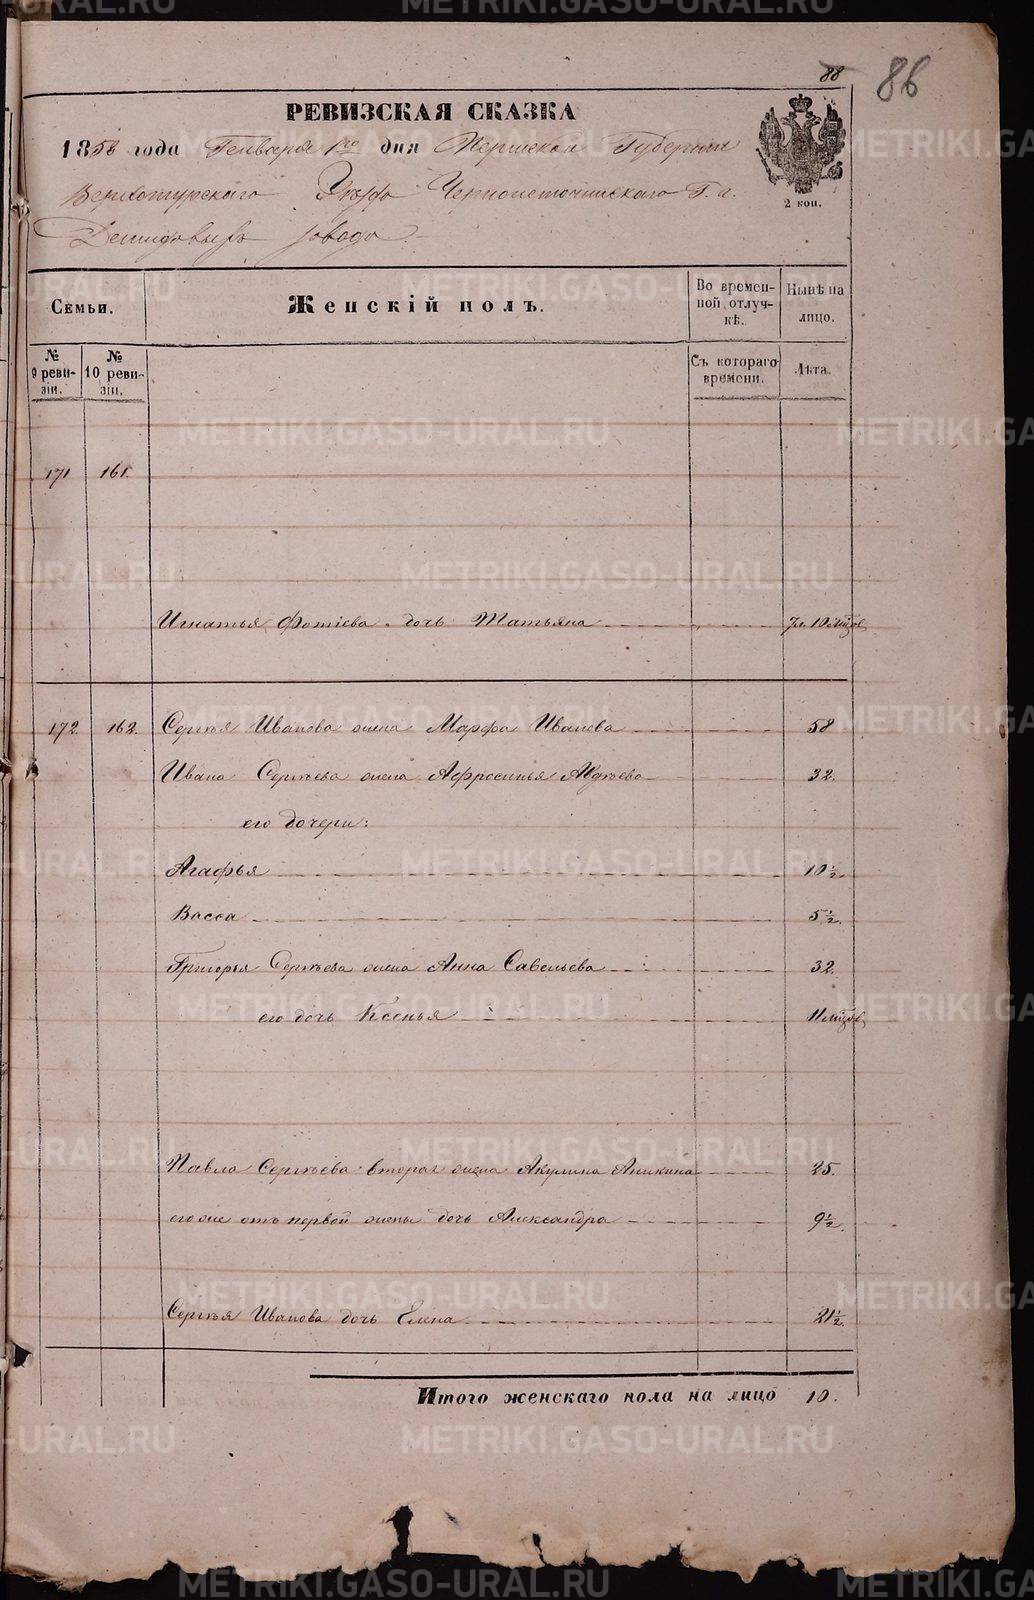 METRIKI.GASO-URAL.RU
88
86
РЕВИЗСКАЯ СКАЗКА
1858 года Генваря 1го дня Пермской Губернии
Верхотурского Уезда Черноисточинскаго Г.г.
Демидовыхъ завода.
2 коп.
Семьи.
Женскій полъ.
Во времен-
ной отлуч-
кѣ.
Нынѣ на
лицо.
№
9 реви-
зіи.
№
10 реви-
зіи.
Съ котораго
времени.
Лѣта.
171 161.
Игнатья Фотіева дочь Татьяна 7л. 10 мѣцов.
172. 162. Сергѣя Иванова жена Марфа Иванова 58
Ивана Сергѣева жена Афросинья Авдѣева 32.
его дочери:
Агафья 10½.
Васса 5½.
Григорья Сергѣева жена Анна Савельева 32.
его дочь Ксенья 11 мѣцов.
Павла Сергѣева вторая жена Акулина Аникина 25.
его же отъ первой жены дочь Александра 9½.
Сергѣя Иванова дочь Елена 21½.
Итого женскаго пола на лицо 10.